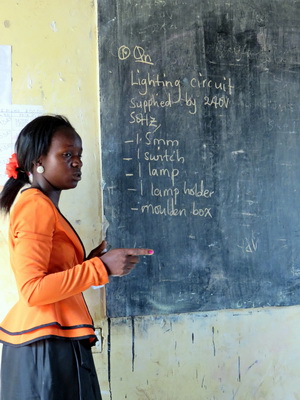 Qn
Lighting circuit
supplied by 240V
50Hz,
- 1.5mm
- 1 switch
- 1 lamp
- 1 lamp holder
- moulden box